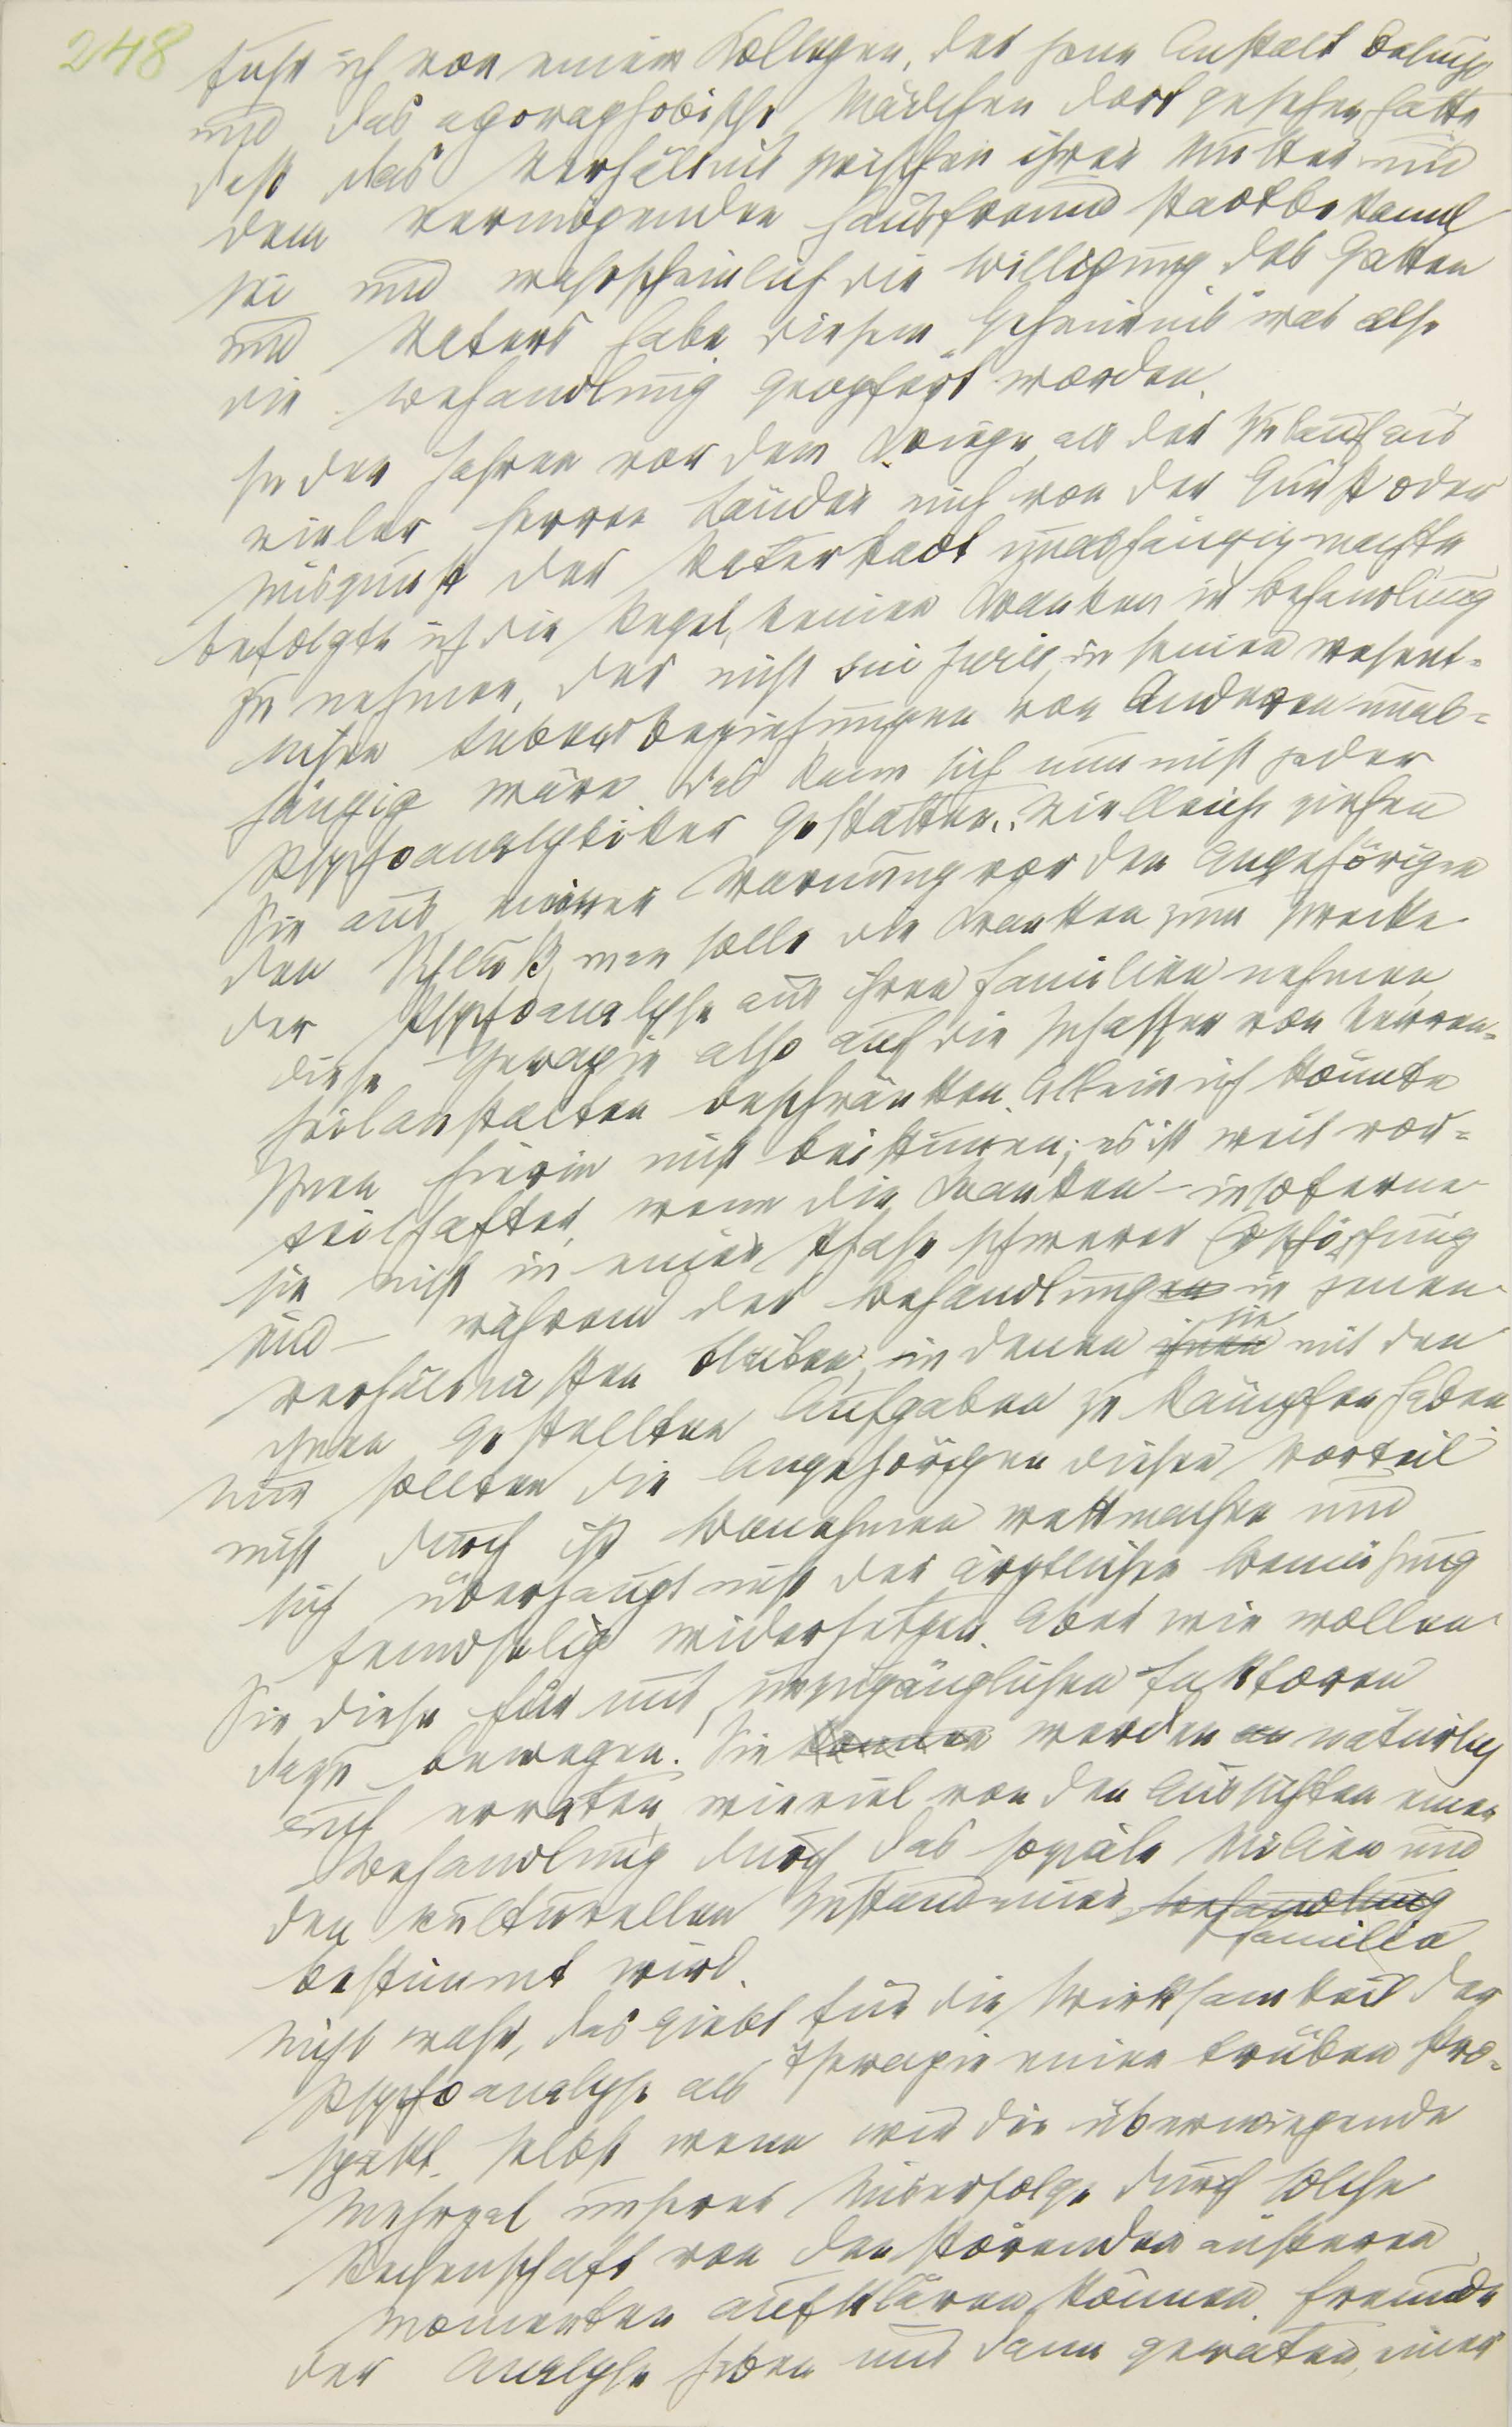 248
fuhr ich von einem Kollegen, der jene Anstalt besucht
und das agoraphobische Mädchen dort gesehen hatte
daß das Verhältnis zwischen ihrer Mutter und
dem vermögenden Hausfreund stadtbekannt
sei und wahrscheinlich die Billigung des Gatten
und Vaters habe. Diesem „Geheimnis“ war also
die Behandlung geopfert worden.
In den Jahren vor dem Kriege, als der Zulauf aus
vieler Herren Länder mich von der Gunst oder
Misgunst der Vaterstadt unabhängig machte
befolgte ich die Regel, keinen Kranken in Behandlung
zu nehmen, der nicht sui juris, in seinen wesent-
lichen Lebensbeziehungen von Anderen unab-
hängig wäre. Das kann sich nun nicht jeder
Psychoanalytiker gestatten. Vielleicht ziehen
Sie aus meiner Warnung vor den Angehörigen
den Schluß, man solle die Kranken zum Zwecke
der Psychoanalyse aus ihren Familien nehmen,
diese Therapie also auf die Insassen von Nerven-
heilanstalten beschränken. Allein ich könnte
Ihnen hierin nicht beistimmen; es ist weit vor-
teilhafter, wenn die Kranken – insoferne
sie nicht in einer Phase schwerer Erschöpfung
sind – während der Behandlungen in jenen
Verhältnissen bleiben, in denen ihnen sie mit den
ihnen gestellten Aufgaben zu kämpfen haben.
Nur sollten die Angehörigen diesen Vorteil
nicht durch ihr Benehmen wettmachen und
sich überhaupt nicht der ärztlichen Bemühung
feindselig widersetzen. Aber wie wollen
Sie diese für uns unzugänglichen Faktoren
dazu bewegen! Sie können werden an natürlich
auch erraten, wieviel von den Aussichten einer
Behandlung durch das soziale Milieu und
den kulturellen Zustand einer Behandlung
Familie
bestimmt wird.
Nicht wahr, das giebt für die Wirksamkeit der
Psychoanalyse als Therapie einen trüben Pro-
spekt, selbst wenn wir die überwiegende
Mehrzal unserer Miserfolge durch solche
Rechenschaft von den störenden äußeren
Momenten aufklären können. Freunde
der Analyse haben uns dann geraten, einer